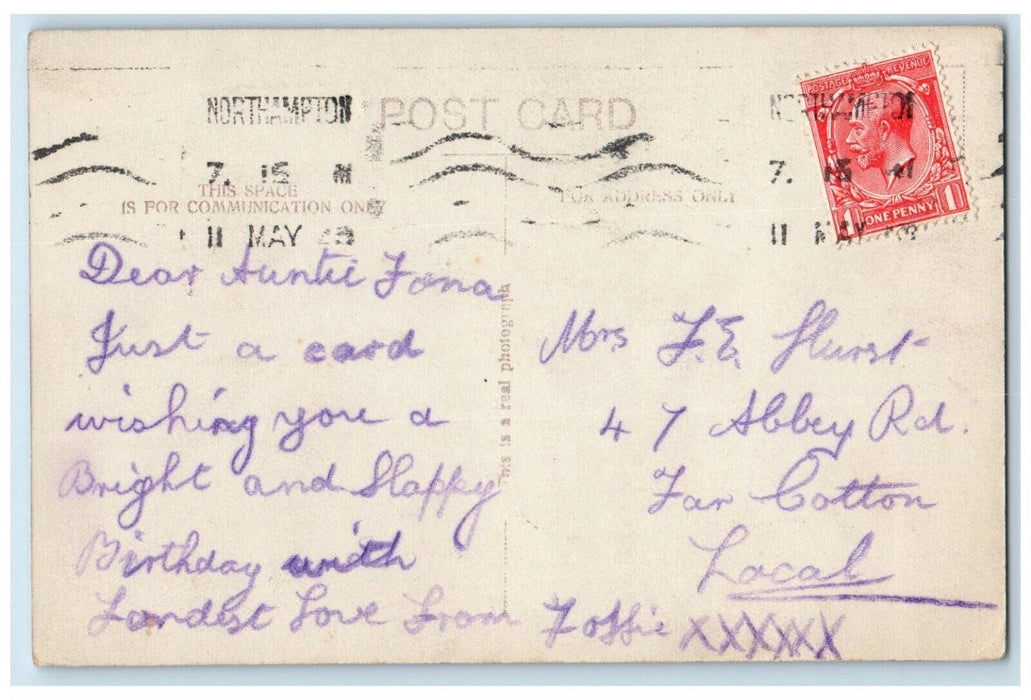 POST CARD
NORTHAMPTON
7. 15
11 MAY
NORTHAMPTON
7. 15
11 MAY
POSTAGE REVENUE
1 ONE PENNY 1
THIS SPACE
IS FOR COMMUNICATION ONLY
FOR ADDRESS ONLY
This is a real photograph
Dear Auntie
Just a card
wishing you a
Bright and Happy
Birthday with
Fondest Love From
XXXXXX
Mrs F. E. Hurst
47 Abbey Rd.
Far Cotton
Local